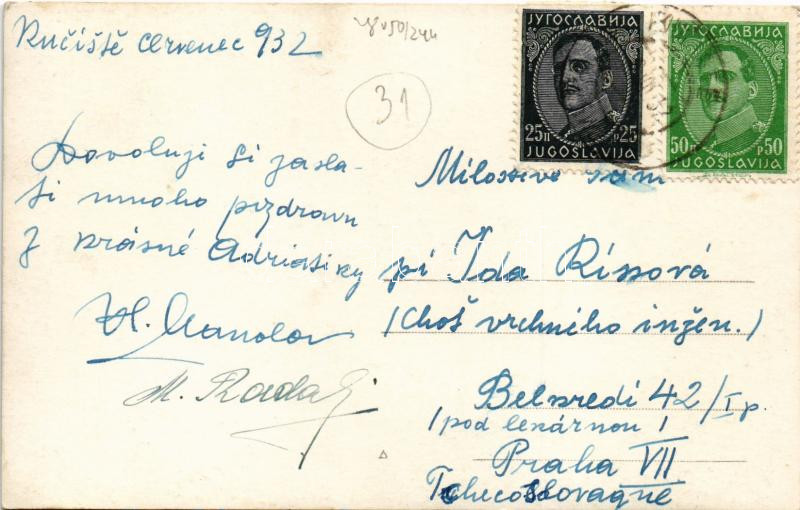 Kučiště červenec 932
31
ЈУГОСЛАВИЈА
25п p25
JUGOSLAVIJA
ЈУГОСЛАВИЈА
50п p50
JUGOSLAVIJA
Dovoluji si zasla-
ti mnoho pozdravu
z krásné Adriatiky
Vl. Manolov
M. Radaj
Milostivé paní
pí Ida Rissová
(Choť vrchního inžen.)
Belvredi 42/I p.
(pod lekárnou)
Praha VII
Tchecoslovaque